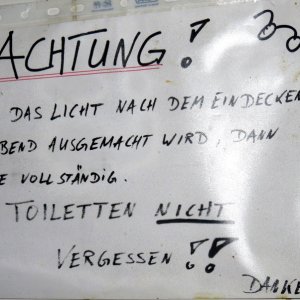 ACHTUNG !
DAS LICHT NACH DEM EINDECKEN
AUSGEMACHT WIRD, DANN
VOLLSTÄNDIG.
TOILETTEN NICHT
VERGESSEN !!
DANKE